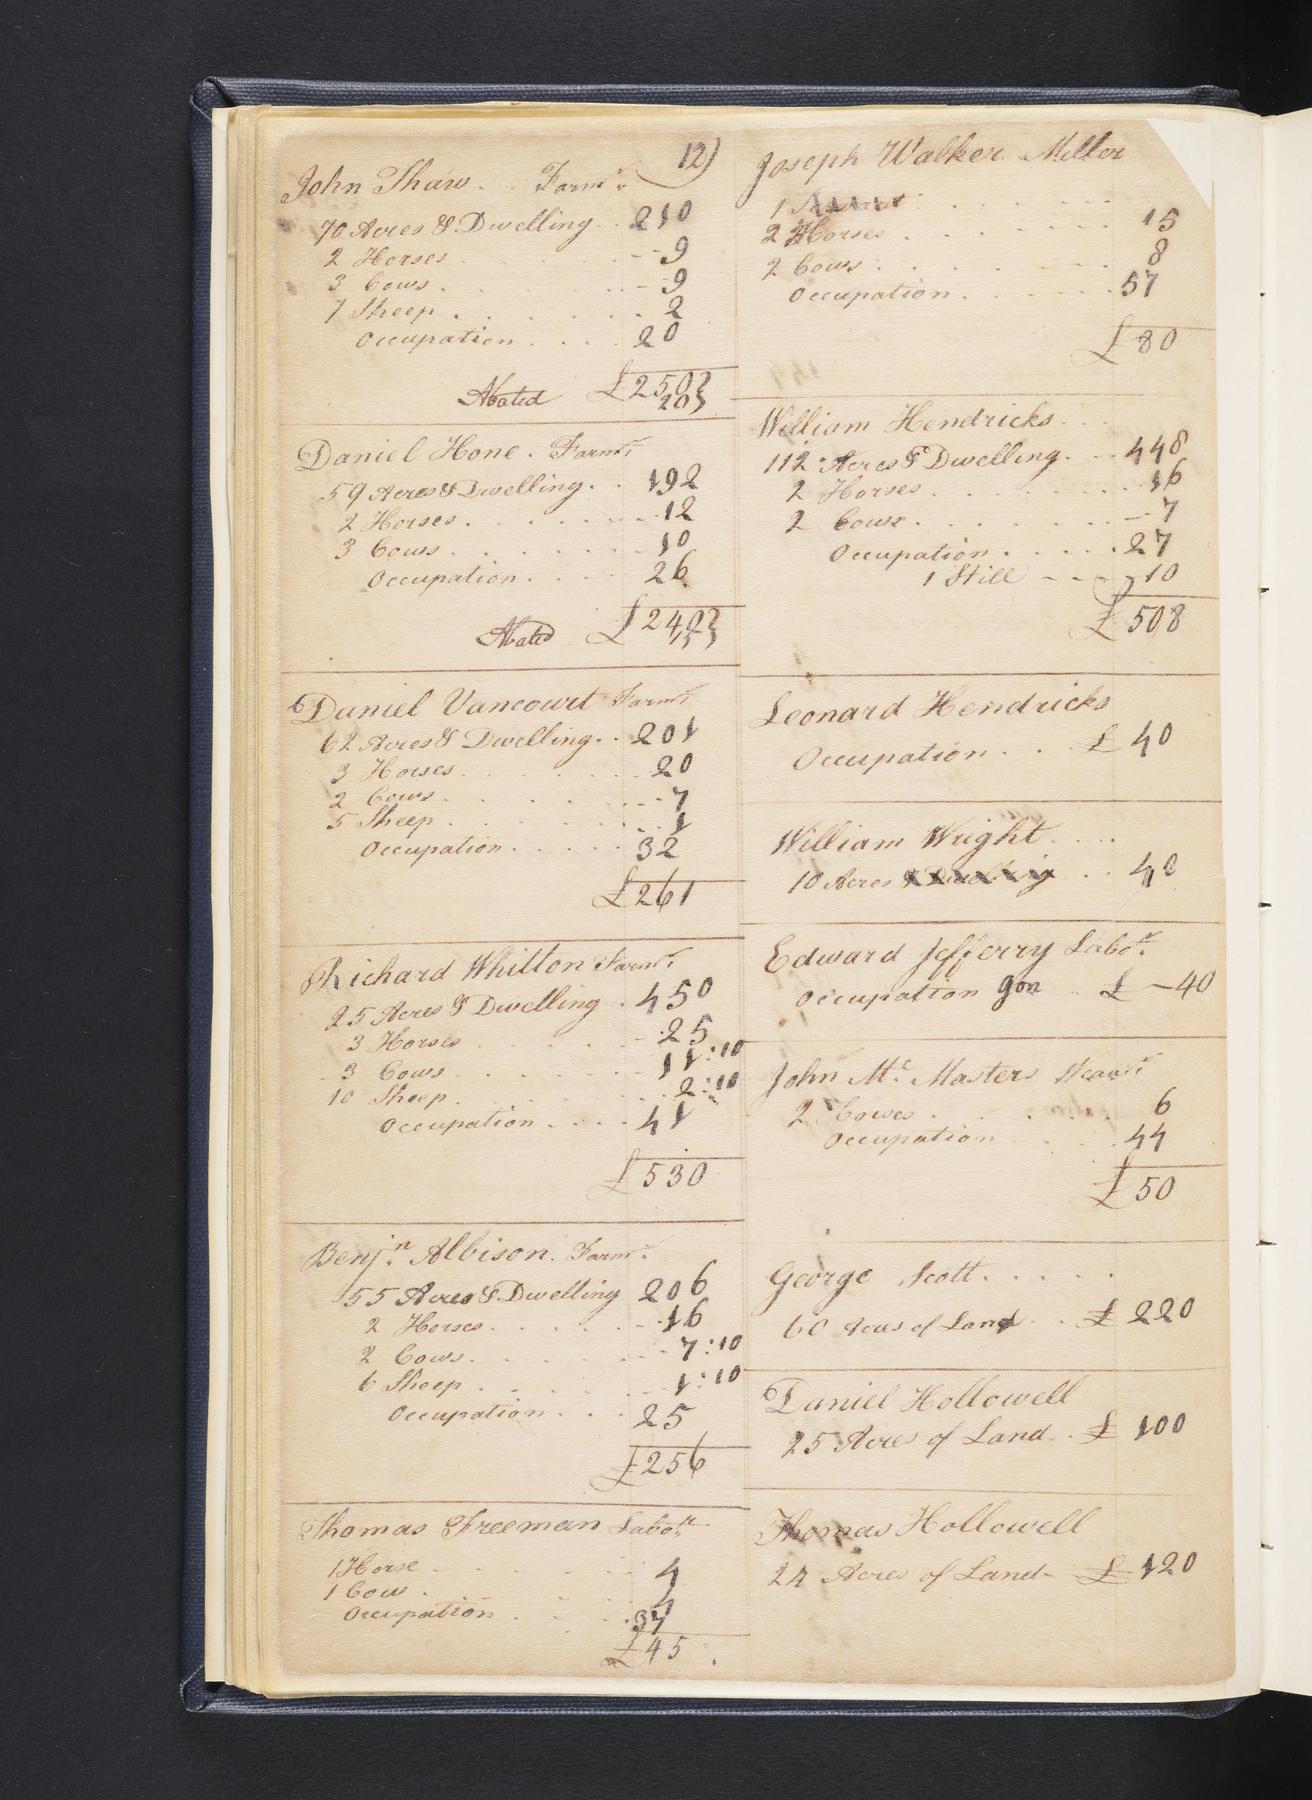 12)
John Shaw . . Farmr.
70 Acres & Dwelling . . 210
2 Horses . . . . 9
3 Cows . . . . 9
7 Sheep . . . . 2
Occupation . . . . 20
Abated £250}
20}
Daniel Hone . Farmr.
59 Acres & Dwelling . . 192
2 Horses . . . . 12
3 Cows . . . . 10
Occupation . . . . 26
Abated £240}
Daniel Vancourt Farmr.
62 Acres & Dwelling . . 201
3 Horses . . . . 20
2 Cows . . . . 7
5 Sheep . . . . 1
Occupation . . . . 32
£261
Richard Whitton Farmr.
25 Acres & Dwelling . 450
3 Horses . . . . 25
3 Cows . . . . 11:10
10 Sheep . . . . 2:10
Occupation . . . . 41
£530
Benjn. Albison . Farmr.
55 Acres & Dwelling 206
2 Horses . . . . 16
2 Cows . . . . 7:10
6 Sheep . . . . 1:10
Occupation . . . 25
£256
Thomas Freeman Labor.
1 Horse . . . . 4
1 Cow . . . . 4
Occupation . . . . 37
£45
Joseph Walker Miller
1
2 Horses . . . . 15
2 Cows . . . . 8
Occupation . . . . 57
£80
William Hendricks . . .
112 Acres & Dwelling . . 448
2 Horses . . . . 16
2 Cows . . . . 7
Occupation . . . . 27
1 Still - - - 10
£508
Leonard Hendricks
Occupation . . . £ 40
William Wright . . . .
10 Acres & Dwelling . . . 40
Edward Jefferry Labor.
Occupation . . £ - 40
John Mc. Masters Weavr.
2 Cowes . . . . 6
Occupation . . . . 44
£50
George Scott . . . . .
60 Acres of Land . . £ 220
Daniel Hollowell
25 Acres of Land . . £ 100
Thomas Hollowell
24 Acres of Land - £ 120